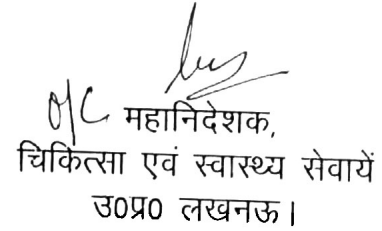 O/C महानिदेशक,
चिकित्सा एवं स्वास्थ्य सेवायें
उ0प्र0 लखनऊ।